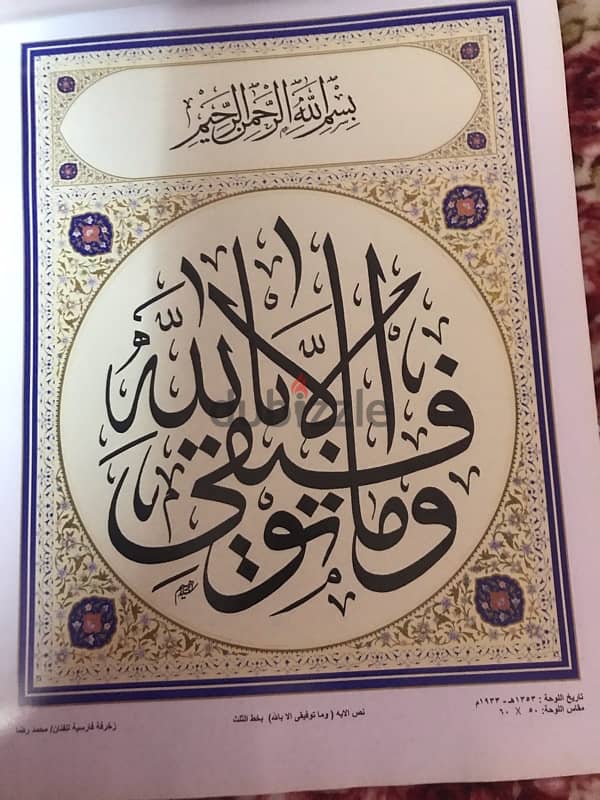 بِسْمِ اللهِ الرَّحْمٰنِ الرَّحِيْمِ
وما توفيقي الا بالله
dubizzle
تاريخ اللوحة : ١٣٥٣هـ - ١٩٣٣م
مقاس اللوحة: ٥٠ × ٦٠
نص الايه ( وما توفيقى الا بالله) بخط الثلث
زخرفة فارسية للفنان/ محمد رضا